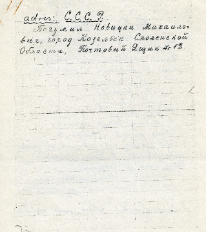 adres: C.C.C.P.
Богумил Новицки Михаило-
вич, город Козельск Смоленской
Области, Почтовый Ящик № 12